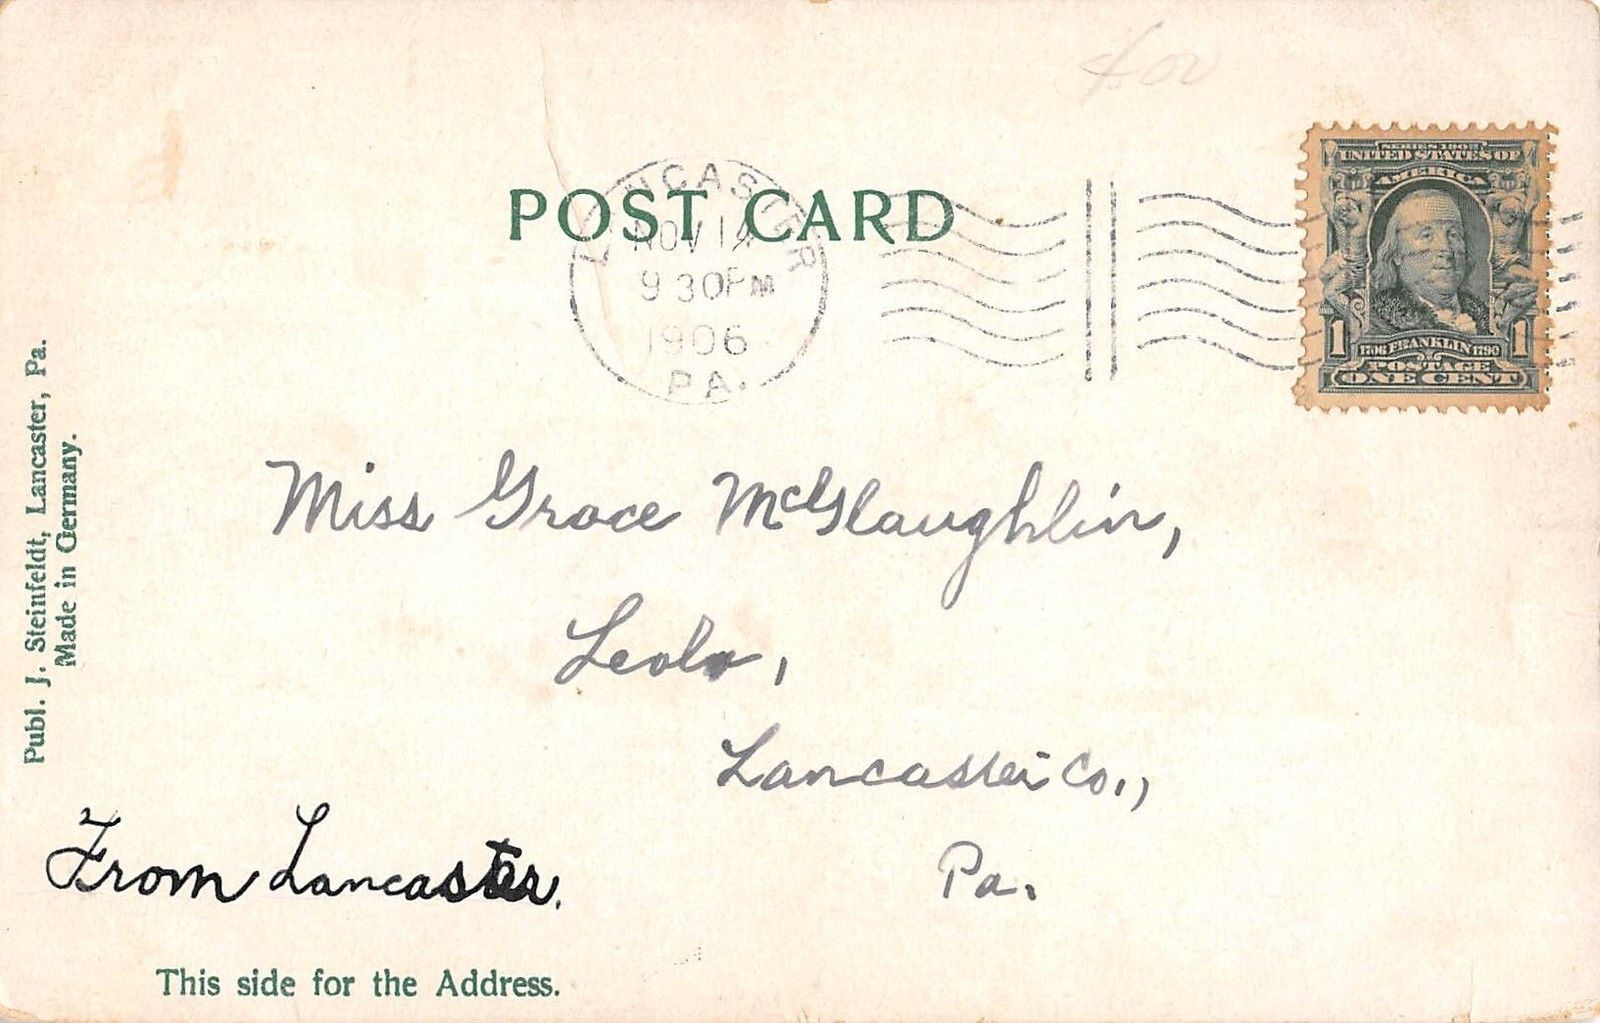 POST CARD
LANCASTER
NOV 14
9 30PM
1906
PA.
SERIES 1902
UNITED STATES OF
AMERICA
1 1706 FRANKLIN 1790 1
POSTAGE
ONE CENT
Miss Grace McGlaughlin,
Leola,
Lancaster Co.,
Pa.
From Lancaster.
This side for the Address.
Publ. J. Steinfeldt, Lancaster, Pa.
Made in Germany.